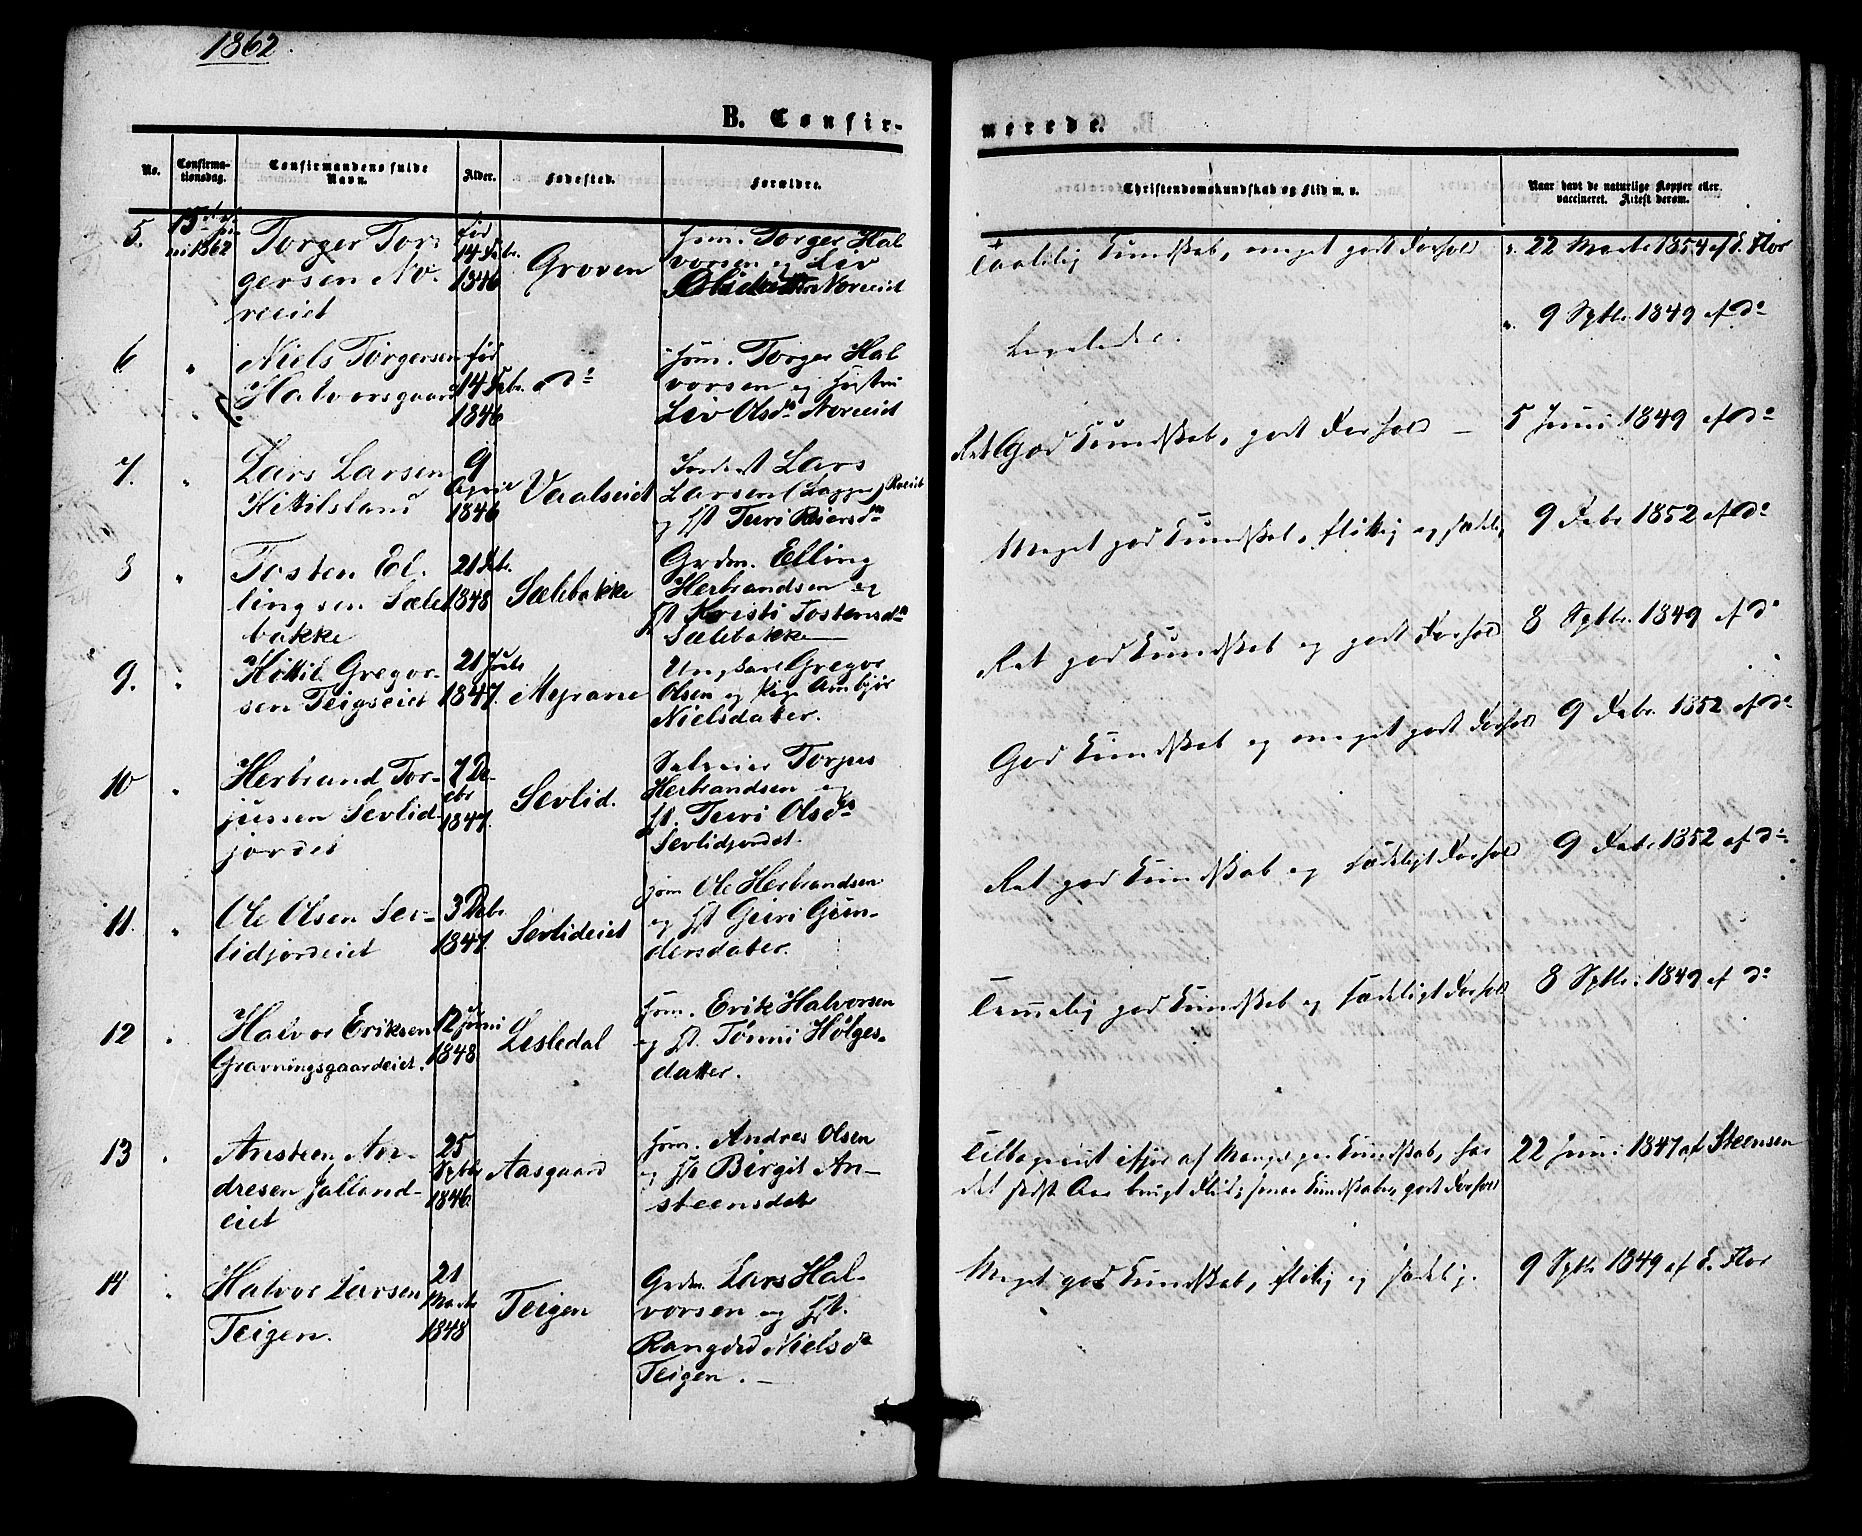 1862.
B. Confir-
merede.
No.
Confirma-
tionsdag.
Confirmandens fulde
Navn.
Alder.
Fødested.
Forældre.
Christendomskundskab og Flid m. v.
Naar havt de naturlige Kopper eller
vaccineret. Attest derom.
5.
15de Ju
ni 1862
Torger Tor-
gersen No-
reeiet
fød
14 Febr.
1846
Groven
Hsm. Torger Hal
vorsen og Liv
Olsdatter Noreeiet
Taalelig Kundskab, meget godt Forhold
v. 22 Marts 1854 af E. Flor
6
"
Niels Torgersen
Halvorsgaard
fød
14 Febr.
1846
do
Hsm. Torger Hal
vorsen og Hustru
Liv Olsdr Noreeiet
Ligeledes.
v. 9 Sptbr. 1849 af do
7.
"
Lars Larsen
Kittilsland
9
April
1846
Vaalseiet
Lars
Larsen (Lappe) Roeeiet
og Hst Turi Reiersdr
Ret God Kundskab, godt Forhold –
5 Juni 1849 af do
8
"
Tosten El-
lingsen Sæle
bakke
21 Febr.
1848
Sælebakke
Grdm. Elling
Herbrandsen og
Hst Kristi Tostensdr
Sælebakke
Meget god Kundskab, flittig og sædelig
9 Febr 1852 af do
9.
"
Kittil Gregor-
sen Teigseiet
21
1847.
Mejrane
Ungkarl Gregor
Olsen og Pige Ambjør
Nielsdatter.
Ret god Kundskab og godt Forhold
8 Sptbr. 1849 af do
10
"
Herbrand Tor-
jussen Sevlid-
jordet
7 De-
cbr
1847.
Sevlid.
Selveier Torjus
Herbrandsen og
Hst. Turi Olsdr
Sevlidjordet.
God Kundskab og meget godt Forhold
9 Febr. 1852 af do
11.
"
Ole Olsen Sev-
lidjordeiet
3 Debr
1847.
Sevlideiet
Hsm Ole Herbrandsen
og Hst Guri Gun-
dersdatter.
Ret god Kundskab og sædeligt Forhold
9 Febr 1852 af do
12
"
Halvor Eriksen
Gravningsgaardeiet.
12 Juni
1848
Lisledal
Hsm. Erik Halvorsen
og Hst. Tønni Hølges-
datter.
Temmelig god Kundskab og sædeligt Forhold
8 Sptbr. 1849 af do
13
"
Ansteen An-
dresen Jalland-
eiet
25
Sptbr
1846
Aasgaard
Hsm. Andres Olsen
og Hst Birgit An-
steensdatr
Tilbageviist ifjor af Mangel paa Kundskab, har
det sidste Aar brugt Flid; Kundskab, godt Forhold
22 Juni 1847 af Steensen
14
"
Halvor Larsen
Teigen.
21
Marts
1848
Teigen
Grdm. Lars Hal-
vorsen og Hst.
Rangdid Nielsdr
Teigen. –
Meget god Kundskab, flittig og sædelig.
9 Sptbr 1849 af E. Flor